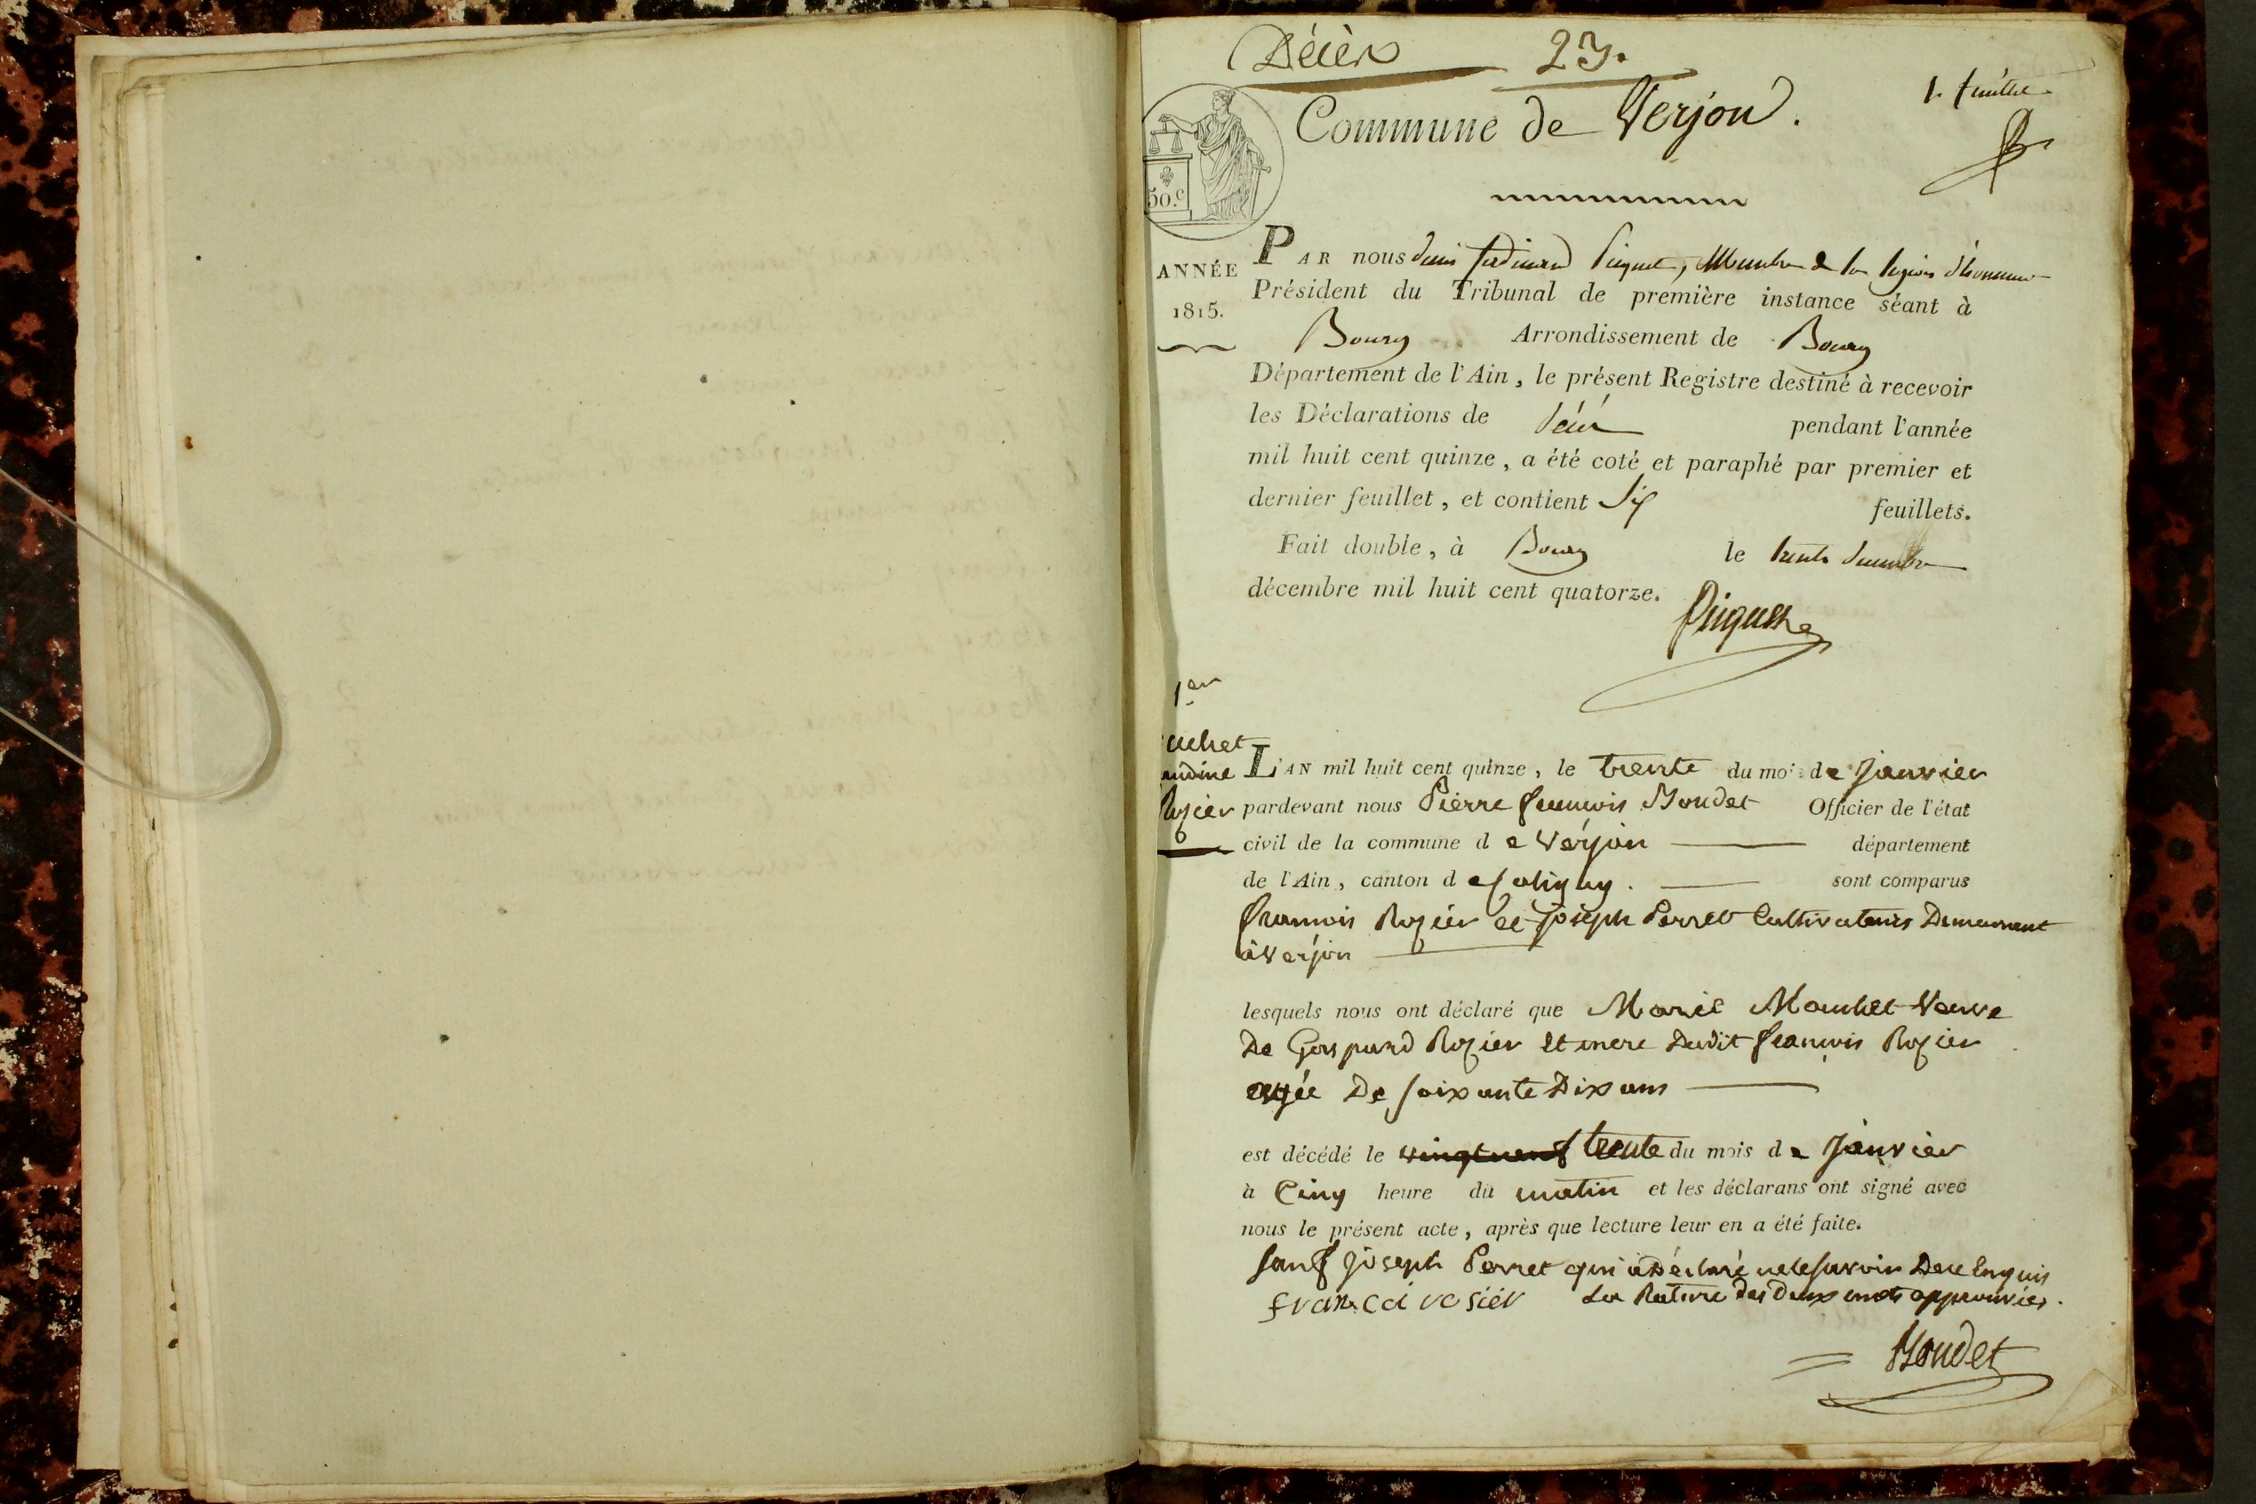 Décès 23.
1. feuillet
Commune de Verjon.
50.c
ANNÉE
1815.
PAR nous Denis ferdinand Piquet, Membre de la légion d'honneur
Président du Tribunal de première instance séant à
Bourg Arrondissement de Bourg
Département de l'Ain, le présent Registre destiné à recevoir
les Déclarations de décès pendant l'année
mil huit cent quinze, a été coté et paraphé par premier et
dernier feuillet, et contient Six feuillets.
Fait double, à Bourg le trente décembre
décembre mil huit cent quatorze.
1er
uchet
audine
Rozier
L'AN mil huit cent quinze, le trente du mois de janvier
pardevant nous Pierre francois Officier de l'état
civil de la commune de Verjon département
de l'Ain, canton de Coligny. sont comparus
francois Rozier et joseph Perret Cultivateurs Demeurant
à Verjon
lesquels nous ont déclaré que Marie Mouchet Veuve
De Gaspard Rozier et mere Dudit francois Rozier
agée De soixante Dix ans
est décédé le vingt neuf trente du mois de janvier
à Cinq heure du matin et les déclarans ont signé avec
nous le présent acte, après que lecture leur en a été faite.
sauf joseph Perret qui a Déclaré ne le savoir De ce Enquis
francoi rosier La Rature des Deux mots approuvées.